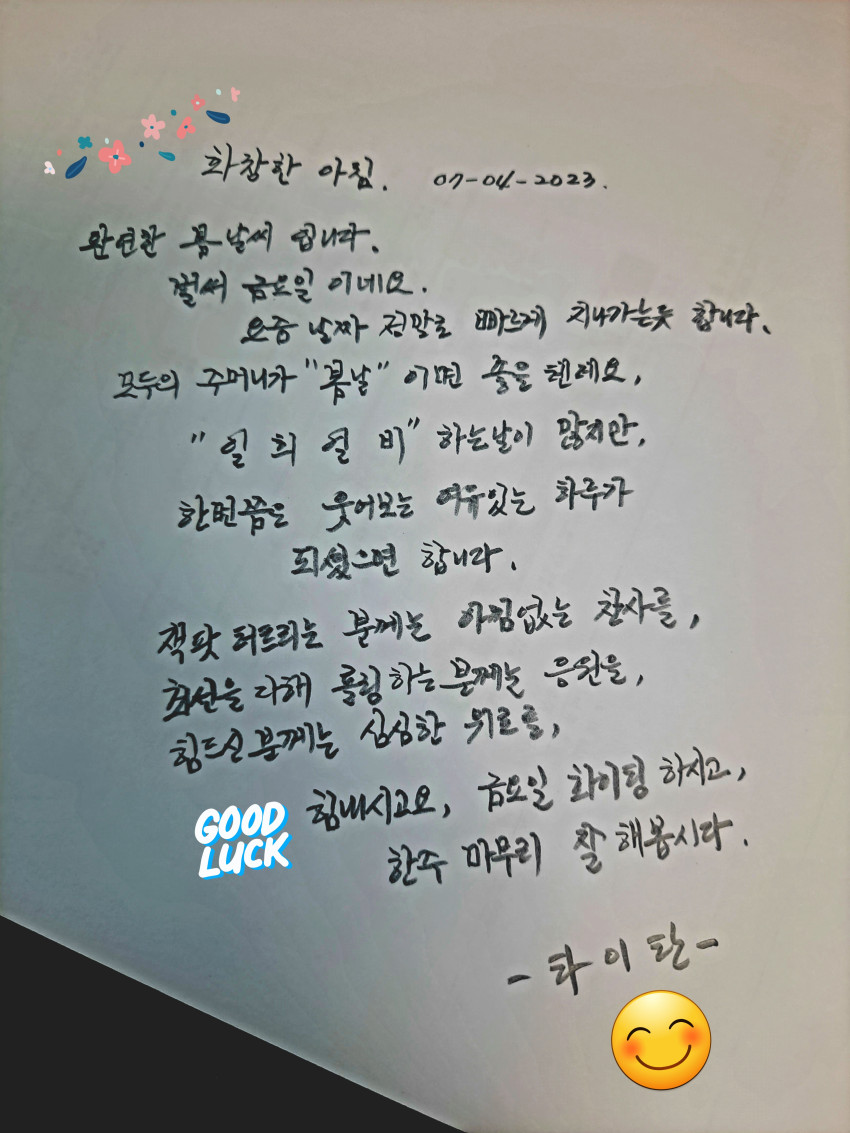 화창한 아침. 07-04-2023.
완연한 봄날씨 입니다.
벌써 금요일 이네요.
요즘 날짜 정말로 빠르게 지나가는듯 합니다.
모두의 주머니가 "봄날" 이면 좋을 텐데요,
"일 희 일 비" 하는날이 많지만,
한번쯤은 웃어보는 여유있는 하루가
되셨으면 합니다.
잭팟 터트리는 분께는 아낌없는 찬사를,
최선을 다해 롤링하는분께는 응원을,
힘드신분께는 심심한 위로를,
힘내시고요, 금요일 화이팅 하시고,
GOOD
LUCK
한주 마무리 잘 해봅시다.
- 타 이 탄 -